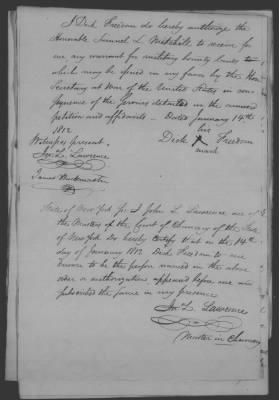 I Dick Freedom do hereby authorize the
Honorable Samuel L. Mitchill to receive for
me any warrant for military bounty lands to
which may be issued in my favor by the Hon.
Secretary at War of the United States in con
sequence of the services detailed in the annexed
petition and affidavits. Dated January 14th
1812
his
Dick X Freedom
mark
Witnesses present
Jno. L. Lawrence
James Buckmaster
State of New York ss. I John L. Lawrence one of
the Masters of the Court of Chancery of the State
of New York do hereby certify that on the 14th
day of January 1812 Dick Freedom to me
known to be the person named in the above
order or authorization appeared before me and
subscribed the same in my presence
Jno. L. Lawrence
Master in Chancery